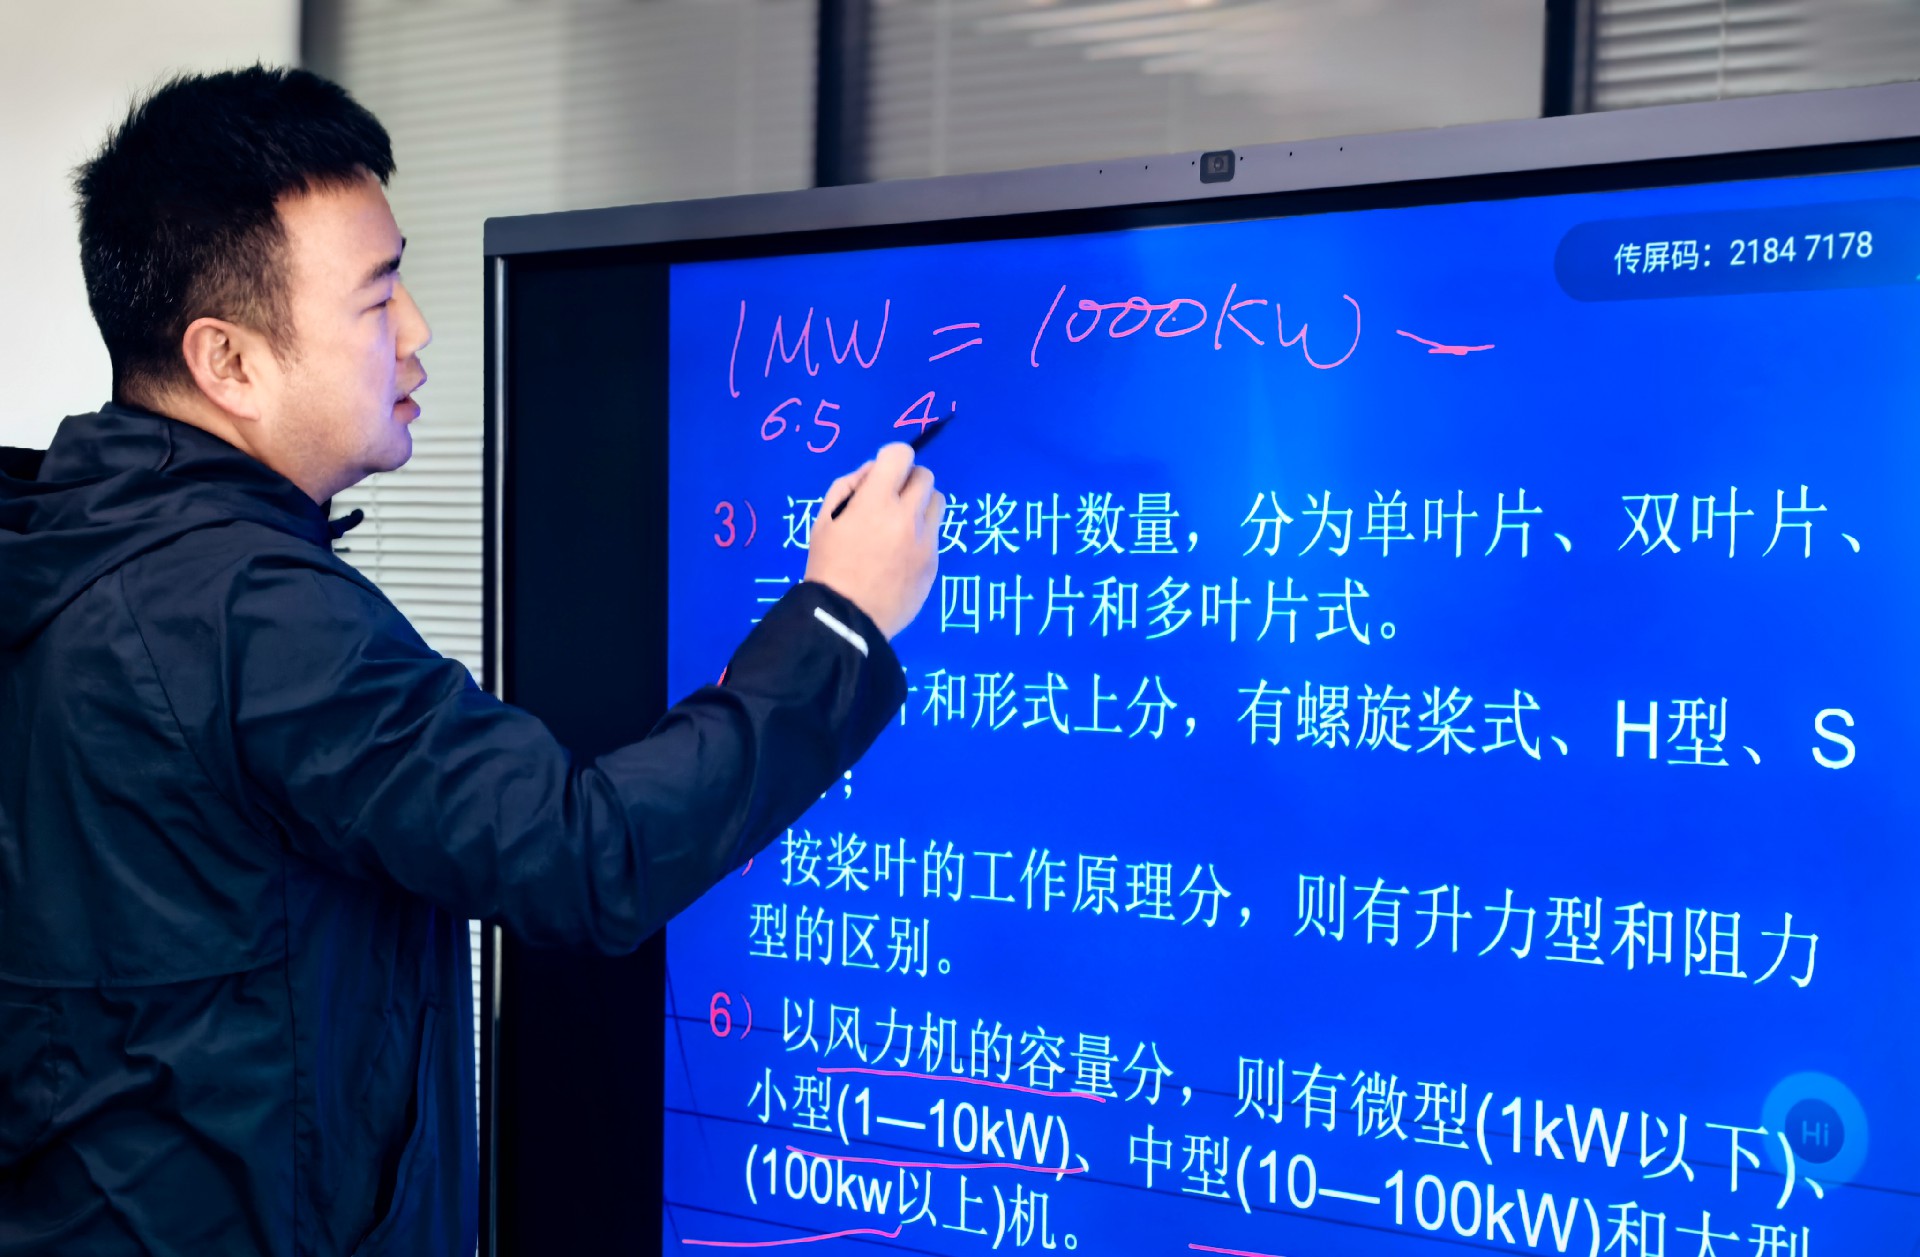 传屏码：2184 7178
1MW = 1000KW
6.5 4.
3） 还 按桨叶数量，分为单叶片、双叶片、
三 四叶片和多叶片式。
和形式上分，有螺旋桨式、H型、S
；
按桨叶的工作原理分，则有升力型和阻力
型的区别。
6） 以风力机的容量分，则有微型(1kW以下)、
小型(1—10kW)、中型(10—100kW)和大型
(100kw以上)机。
Hi